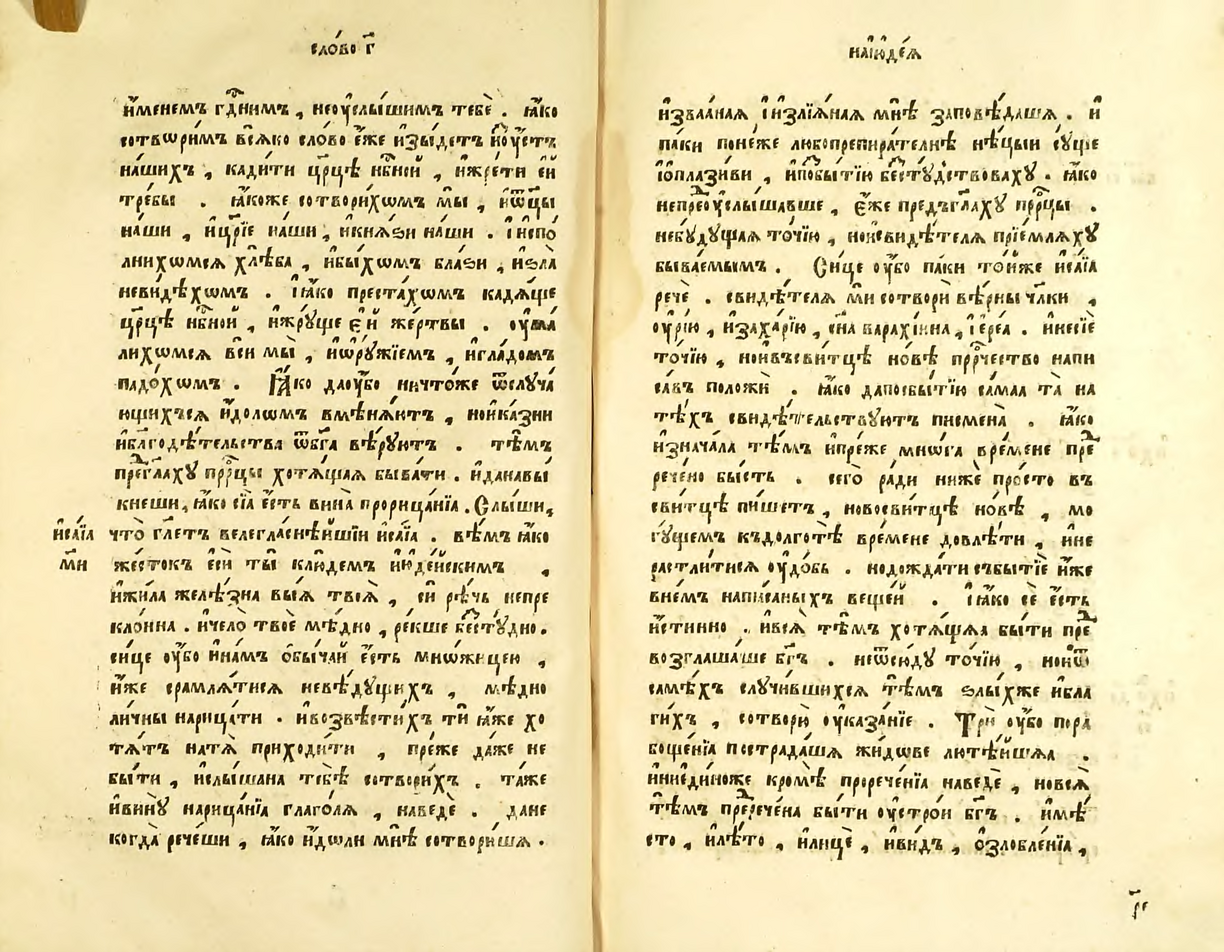 сло́во г҃
и҆́менемъ гⷭ҇нимъ , неоуслы́шимъ тебѐ . ꙗ҆́ко
сотвори́мъ всѧ́ко сло́во є҆́же и҆зы́детъ и҆ѡꙋ҆́стъ
на́шихъ , кади́ти црⷭ҇цѣ нбⷭ҇нѣй , и҆жре́ти є҆́й
тре́бы . ꙗ҆́коже сотвори́хѡмъ мы̀ , и҆ѿцы̀
на́ши , и҆ца́рїе на́ши , и҆кнѧ́ѕи на́ши . і҆испо
лнихѡмсѧ хлѣ́ба , и҆бы́хѡмъ бла́ѕи , и҆ѕла̀
неви́дѣхѡмъ . і҆ꙗ҆́ко преста́хѡмъ кадѧ́ще
црⷭ҇цѣ нбⷭ҇ной , и҆жрꙋ́ще є҆́й же́ртвы . оу҆ма
лихѡмсѧ всѝ мы̀ , и҆ѡ҆рꙋ́жїемъ , и҆гла́домъ
падо́хѡмъ . Ꙗ҆́ко даоу҆́бо ничто́же ѿслꙋча
ющихъсѧ и҆́долѡмъ вмѣнѧ́ютъ , нои҆ка́зни
и҆благодѣ́тельства ѿбг҃а вѣ́рꙋютъ . тѣ́мъ
предⷣглахꙋ прⷪ҇рцы хотѧ́щаѧ быва́ти . и҆данавы́
кнеши , ꙗ҆́ко сїѧ̀ є҆́сть вина̀ прорица́нїѧ . Слы́ши ,
и҆са́їа что̀ гл҃етъ велегла́снѣйшїи и҆са́їа . вѣ́мъ ꙗ҆́ко
м҃и же́стокъ є҆сѝ ты̀ клю́демъ и҆ю҆де́йскимъ ,
и҆жи́ла желѣ́зна вы́ѧ твоѧ̀ , сѝ рѣ́чь непре
кло́нна . и҆чело̀ твоѐ мѣ́дно , ре́кше бестꙋ́дно .
си́це оу҆́бо и҆на́мъ ѻ҆бы́чай є҆́сть мнѡ́жицею ,
и҆́же срамлѧ́тисѧ невѣ́дꙋщихъ , мѣ́дно
ли́чны нарица́ти . и҆возвѣсти́хъ тѝ ꙗ҆́же хо
тѧ́тъ натѧ̀ приходи́ти , пре́же да́же не
бы́ти , и҆слы́шана тебѣ̀ сотвори́хъ . та́же
и҆винꙋ̀ нарица́нїѧ глаго́лѧ , наведѐ . дане
когда̀ рече́ши , ꙗ҆́ко и҆́дѡли мнѣ̀ сотвори́шѧ .
наїю҆де́ѧ
и҆зва́анаѧ і҆излїѧ́наѧ мнѣ̀ заповѣ́дашѧ . и҆
па́ки поне́же любопрепира́телнѣ нѣ́цыи сꙋ́ще
і҆опла́зиви , и҆побы́тїю бестꙋ́дствовахꙋ . ꙗ҆́ко
непреоу҆слы́шавше , є҆́же предъгл҃ахꙋ прⷪ҇рцы .
небꙋ́дꙋщаѧ то́чїю , нои҆свидѣ́телѧ прїе́млѧхꙋ
быва́емымъ . Си́це оу҆́бо па́ки то́йже и҆са́їа
речѐ . свидѣ́телѧ мѝ сотворѝ вѣ́рны чл҃ки ,
оу҆рі́ю , и҆заха́рїю , сн҃а варахі́нна , і҆ере́а . и҆несїѐ
то́чїю , нои҆въсви́тцѣ но́вѣ прⷪ҇рчество напи
са́въ положѝ . ꙗ҆́ко дапосбы́тїю самаа та̀ на
тѣ́хъ свидѣ́тельствꙋютъ писменà . ꙗ҆́ко
и҆знача́ла тѣ́мъ и҆пре́же мно́га вре́мене пре
рече́но бы́сть . сего̀ ра́ди ни́же про́сто въ
сви́тцѣ пи́шетъ , новосви́тцѣ но́вѣ , мо
гꙋ́щемъ къдолготѣ̀ вре́мене довлѣ́ти , и҆не
растли́тисѧ оу҆до́бь . нодожда́ти събы́тїе и҆́же
внем́ъ напи́саныхъ веще́й . і҆ꙗ҆́ко сѐ є҆́сть
и҆́стинно . и҆всѧ̀ тѣ́мъ хотѧ́щаѧ бы́ти преⷣ
возглаша́ше бг҃ъ . неѿсю́дꙋ то́чїю , нои҆ѿ
самѣ́хъ слꙋчи́вшихсѧ тѣ́мъ ѕлы́хже и҆бла
ги́хъ , сотворю̀ оу҆каза́нїе . Трѝ оу҆́бо пора
боще́нїа пострада́шѧ жи́дѡве лютѣ́йшаѧ .
и҆ниеди́ноже кромѣ̀ прорече́нїа наведѐ , новсѧ̀
тѣ́мъ преⷣрече́на бы́ти оу҆стро́и бг҃ъ . и҆мѣ́
сто , и҆лѣ́то , и҆лицѐ , и҆ви́дъ , ѻ҆ѕлобле́нїа ,
р҃е